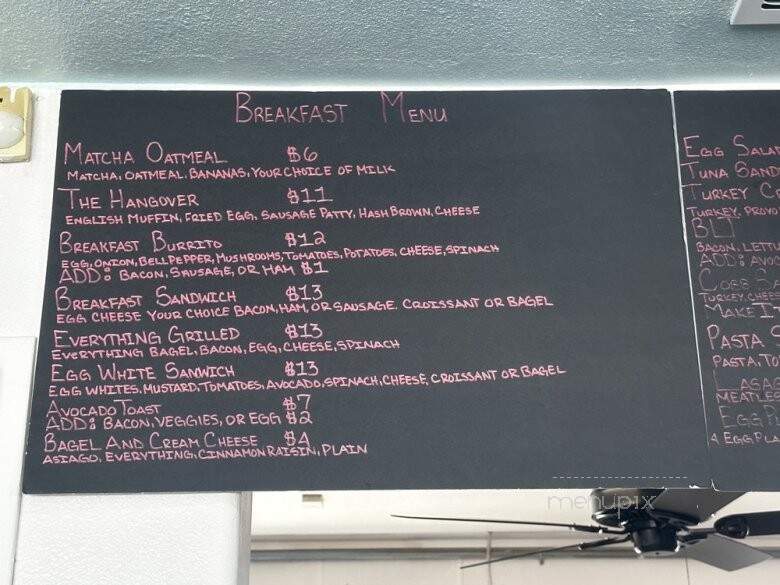 BREAKFAST MENU
MATCHA OATMEAL $6
MATCHA, OATMEAL, BANANAS, YOUR CHOICE OF MILK
THE HANGOVER $11
ENGLISH MUFFIN, FRIED EGG, SAUSAGE PATTY, HASH BROWN, CHEESE
BREAKFAST BURRITO $12
EGG, ONION, BELL PEPPER, MUSHROOMS, TOMATOES, POTATOES, CHEESE, SPINACH
ADD: BACON, SAUSAGE, OR HAM $1
BREAKFAST SANDWICH $13
EGG CHEESE YOUR CHOICE BACON, HAM, OR SAUSAGE. CROISSANT OR BAGEL
EVERYTHING GRILLED $13
EVERYTHING BAGEL, BACON, EGG, CHEESE, SPINACH
EGG WHITE SANWICH $13
EGG WHITES, MUSTARD, TOMATOES, AVOCADO, SPINACH, CHEESE, CROISSANT OR BAGEL
AVOCADO TOAST $7
ADD: BACON, VEGGIES, OR EGG $2
BAGEL AND CREAM CHEESE $4
ASIAGO, EVERYTHING, CINNAMON RAISIN, PLAIN
EGG SALA
TUNA SAND
TURKEY C
TURKEY, PROV
BLT
BACON, LETT
ADD: AVOC
COBB SA
TURKEY, CHEE
MAKE IT
PASTA S
PASTA, TO
LASAG
MEATLES
EGGPL
EGGPLA
menupix